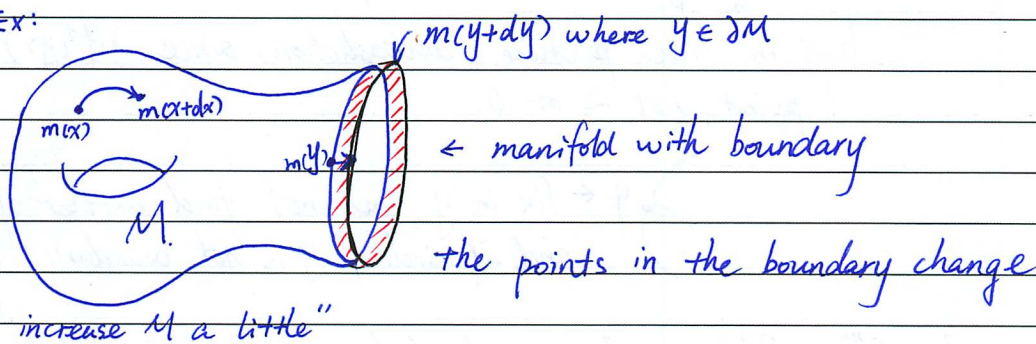 Ex:
m(y+dy) where y ∈ ∂M
m(x)
m(x+dx)
m(y)
← manifold with boundary
M.
the points in the boundary change
increase M a little"